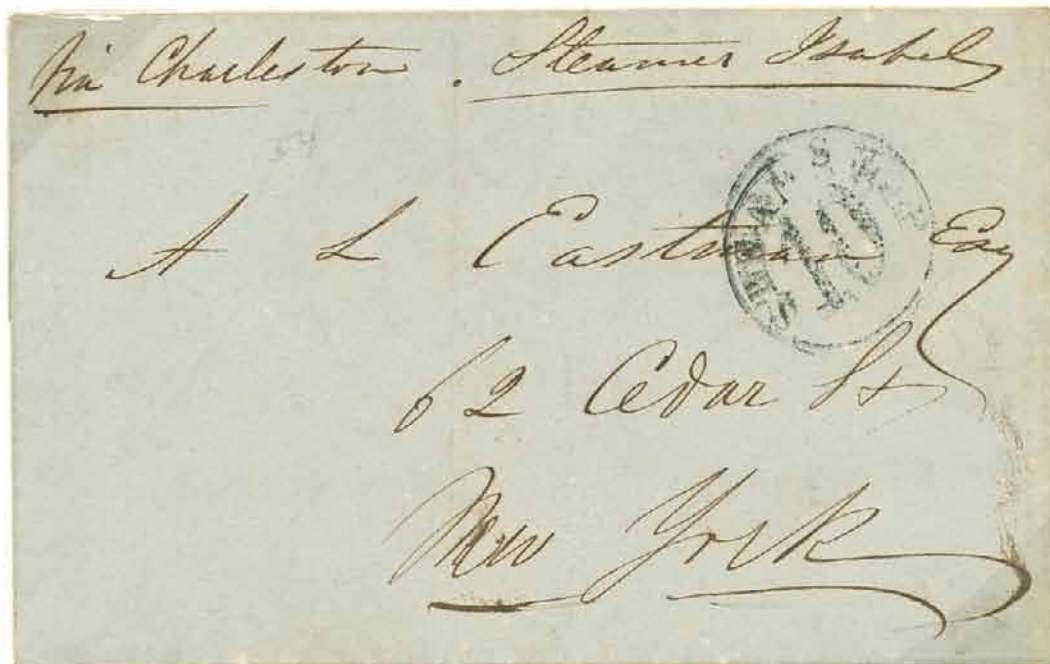 Via Charleston . Steamer Isabel
STEAM SHIP
10
A L Eastman Esq
62 Cedar St
New York